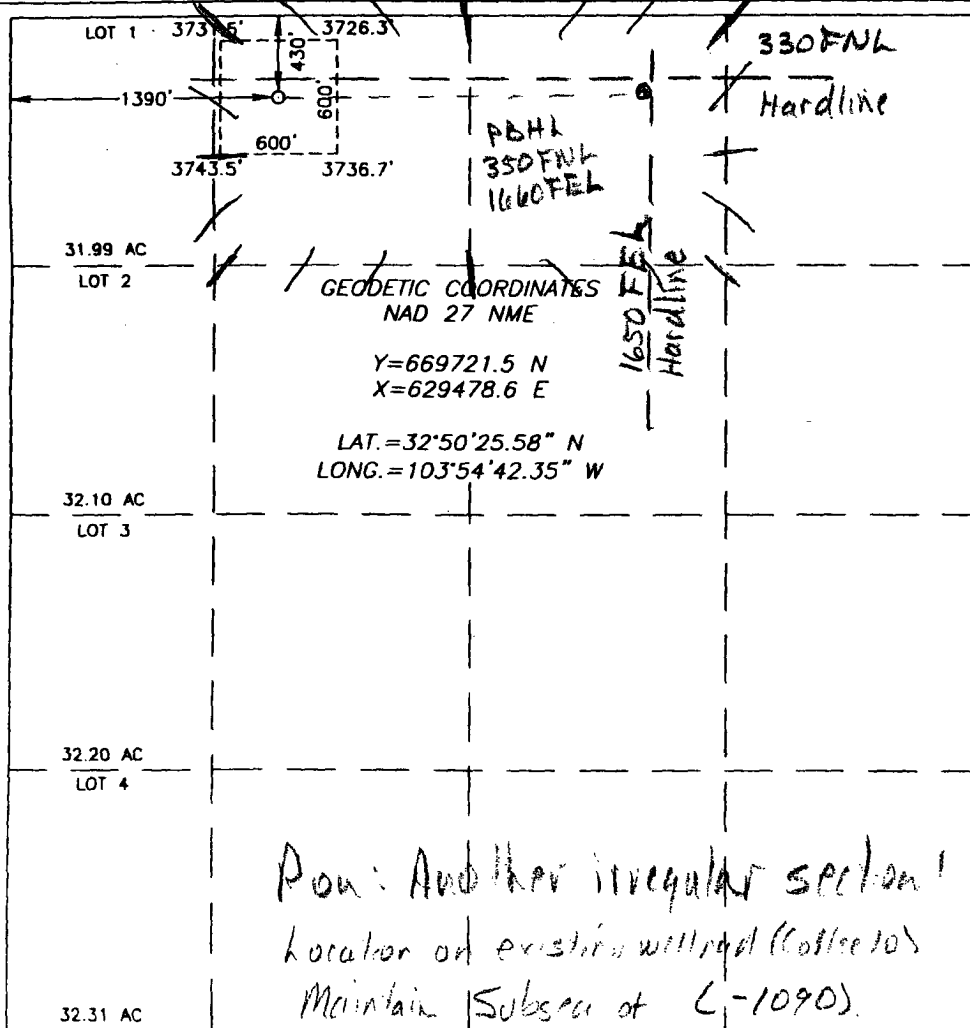 LOT 1 3737.6' 3726.3'
430'
330 FNL
Hardline
1390'
600'
600'
PBHL
350 FNL
1660 FEL
3743.5' 3736.7'
1650 FEL
Hardline
31.99 AC
LOT 2
GEODETIC COORDINATES
NAD 27 NME
Y=669721.5 N
X=629478.6 E
LAT.=32°50'25.58" N
LONG.=103°54'42.35" W
32.10 AC
LOT 3
32.20 AC
LOT 4
Another irregular section!
Location on existing
Maintain Subsea of (-1090).
32.31 AC